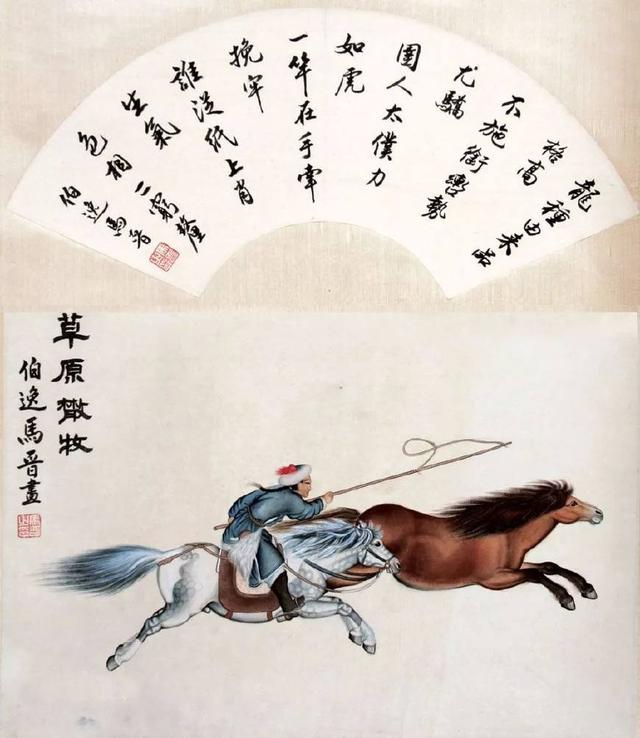 龍種由来品
格高
不施銜轡勢
尤驕
圉人太僕力
如虎
一竿在手牽
挽牢
誰從紙上肖
生氣
色相 窮釐
伯逸馬晉
草原散牧
伯逸馬晉畫